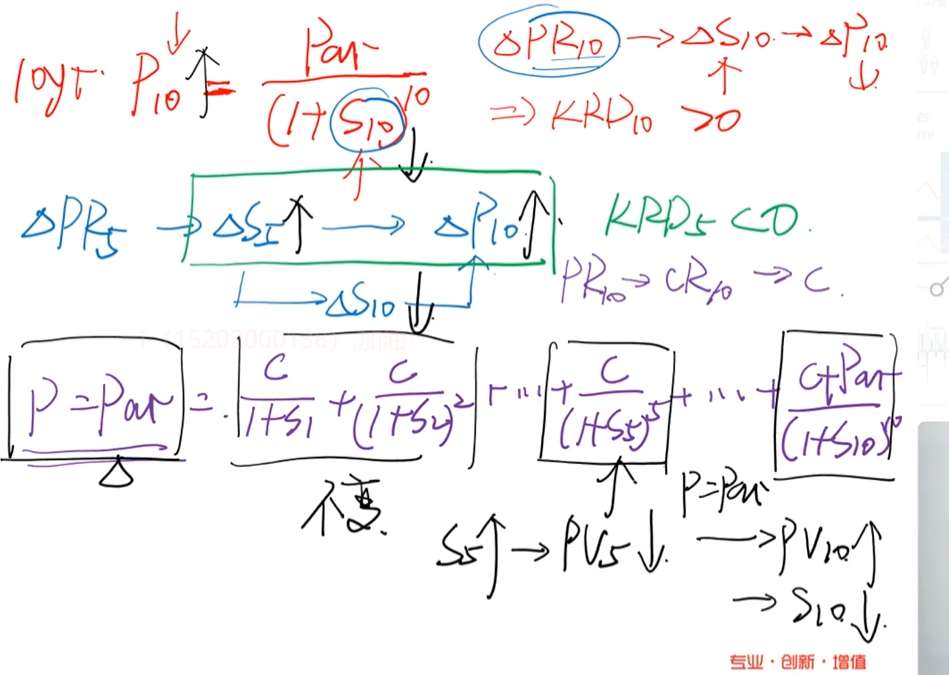 10yr. P₁₀ ↓ ↑ = Par / (1+S₁₀)¹⁰ ↑ ↓
ΔPR₁₀ → ΔS₁₀ ↑ → ΔP₁₀ ↓
⇒ KRD₁₀ >0
ΔPR₅ → ΔS₅ ↑ → ΔP₁₀ ↑ KRD₅ <0.
→ ΔS₁₀ ↓
PR₁₀ → CR₁₀ → C.
P=Par = C / (1+S₁) + C / (1+S₂)² + ... + C / (1+S₅)⁵ + ... + C+Par / (1+S₁₀)¹⁰
Δ
不变.
↑
P=Par
S₅ ↑ → PV₅ ↓. → PV₁₀ ↑
→ S₁₀ ↓.
专业·创新·增值